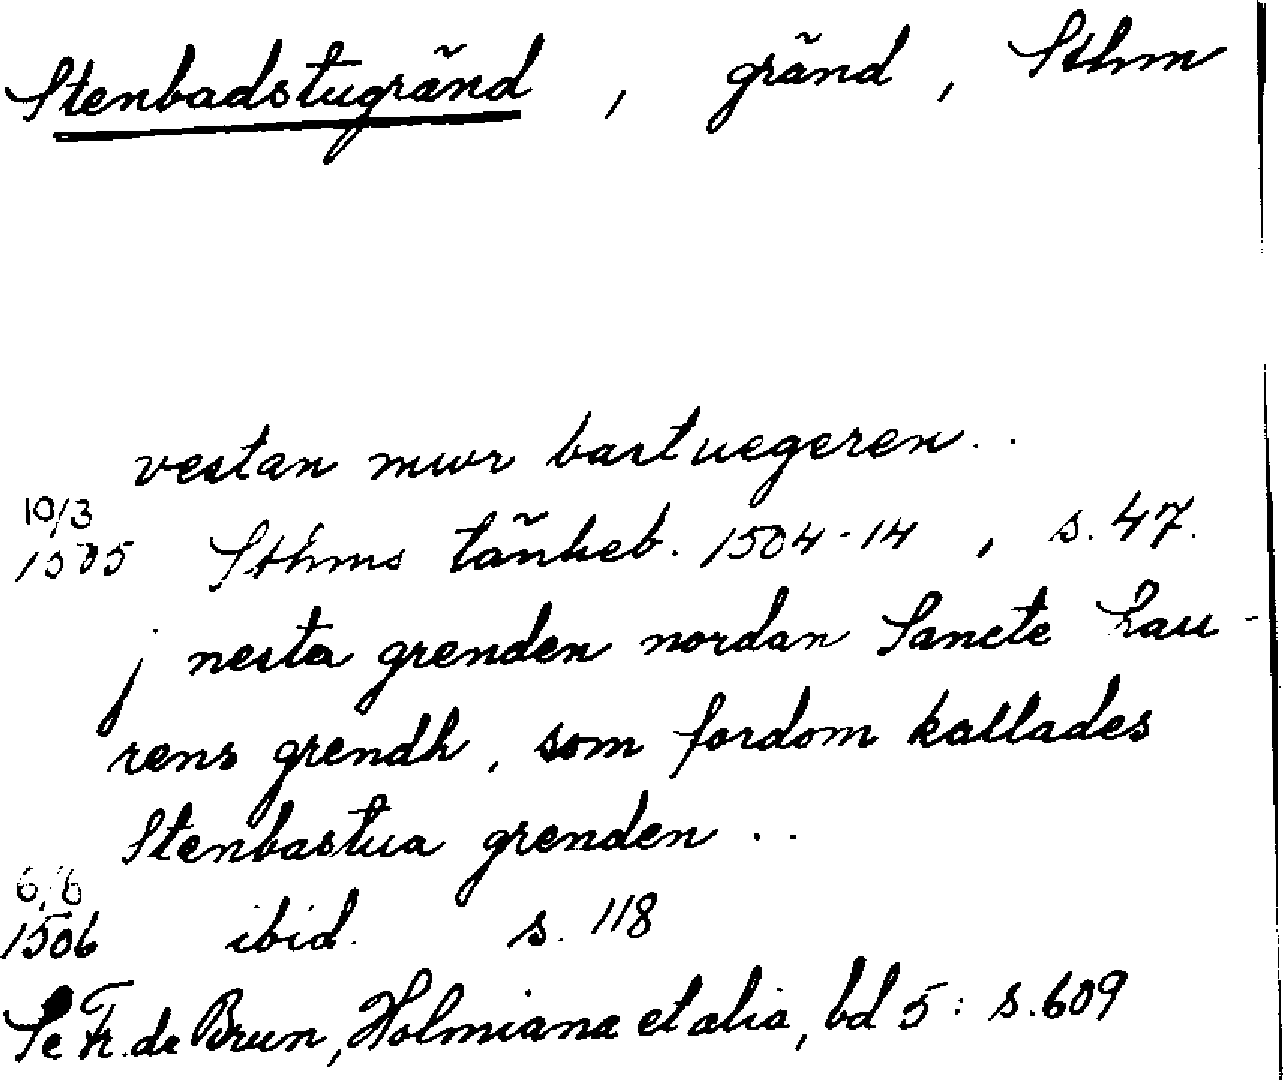 Stenbadstugränd , gränd , Sthm
vestan mwr bastuegeren . .
10/3
1505 Sthms tänkeb. 1504-14 , s. 47.
j nesta grenden nordan Sancte Lau-
rens grendh , som fordom kallades
Stenbastua grenden . .
6/6
1506 ibid. s. 118
Se Fr. de Brun, Holmiana et alia, bd 5: s. 609